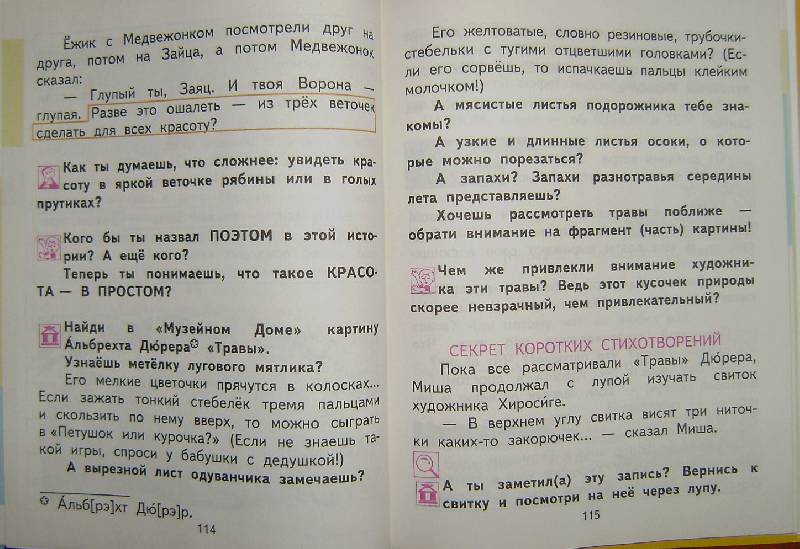 Ёжик с Медвежонком посмотрели друг на
друга, потом на Зайца, а потом Медвежонок
сказал:
— Глупый ты, Заяц. И твоя Ворона —
глупая. Разве это ошалеть — из трёх веточек
сделать для всех красоту?
Как ты думаешь, что сложнее: увидеть кра-
соту в яркой веточке рябины или в голых
прутиках?
Кого бы ты назвал ПОЭТОМ в этой исто-
рии? А ещё кого?
Теперь ты понимаешь, что такое КРАСО-
ТА — В ПРОСТОМ?
Найди в «Музейном Доме» картину
А́льбрехта Дю́рера «Травы».
Узнаёшь метёлку лугового мятлика?
Его мелкие цветочки прячутся в колосках...
Если зажать тонкий стебелёк тремя пальцами
и скользить по нему вверх, то можно сыграть
в «Петушок или курочка?» (Если не знаешь та-
кой игры, спроси у бабушки с дедушкой!)
А вырезной лист одуванчика замечаешь?
А́льб[рэ]хт Дю́[рэ]р.
114
Его желтоватые, словно резиновые, трубочки-
стебельки с тугими отцветшими головками? (Ес-
ли его сорвёшь, то испачкаешь пальцы клейким
молочком!)
А мясистые листья подорожника тебе зна-
комы?
А узкие и длинные листья осоки, о кото-
рые можно порезаться?
А запахи? Запахи разнотравья середины
лета представляешь?
Хочешь рассмотреть травы поближе —
обрати внимание на фрагмент (часть) картины!
Чем же привлекли внимание художни-
ка эти травы? Ведь этот кусочек природы
скорее невзрачный, чем привлекательный?
СЕКРЕТ КОРОТКИХ СТИХОТВОРЕНИЙ
Пока все рассматривали «Травы» Дю́рера,
Миша продолжал с лупой изучать свиток
художника Хироси́ге.
— В верхнем углу свитка висят три ниточ-
ки каких-то закорючек... — сказал Миша.
А ты заметил(а) эту запись? Вернись к
свитку и посмотри на неё через лупу.
115